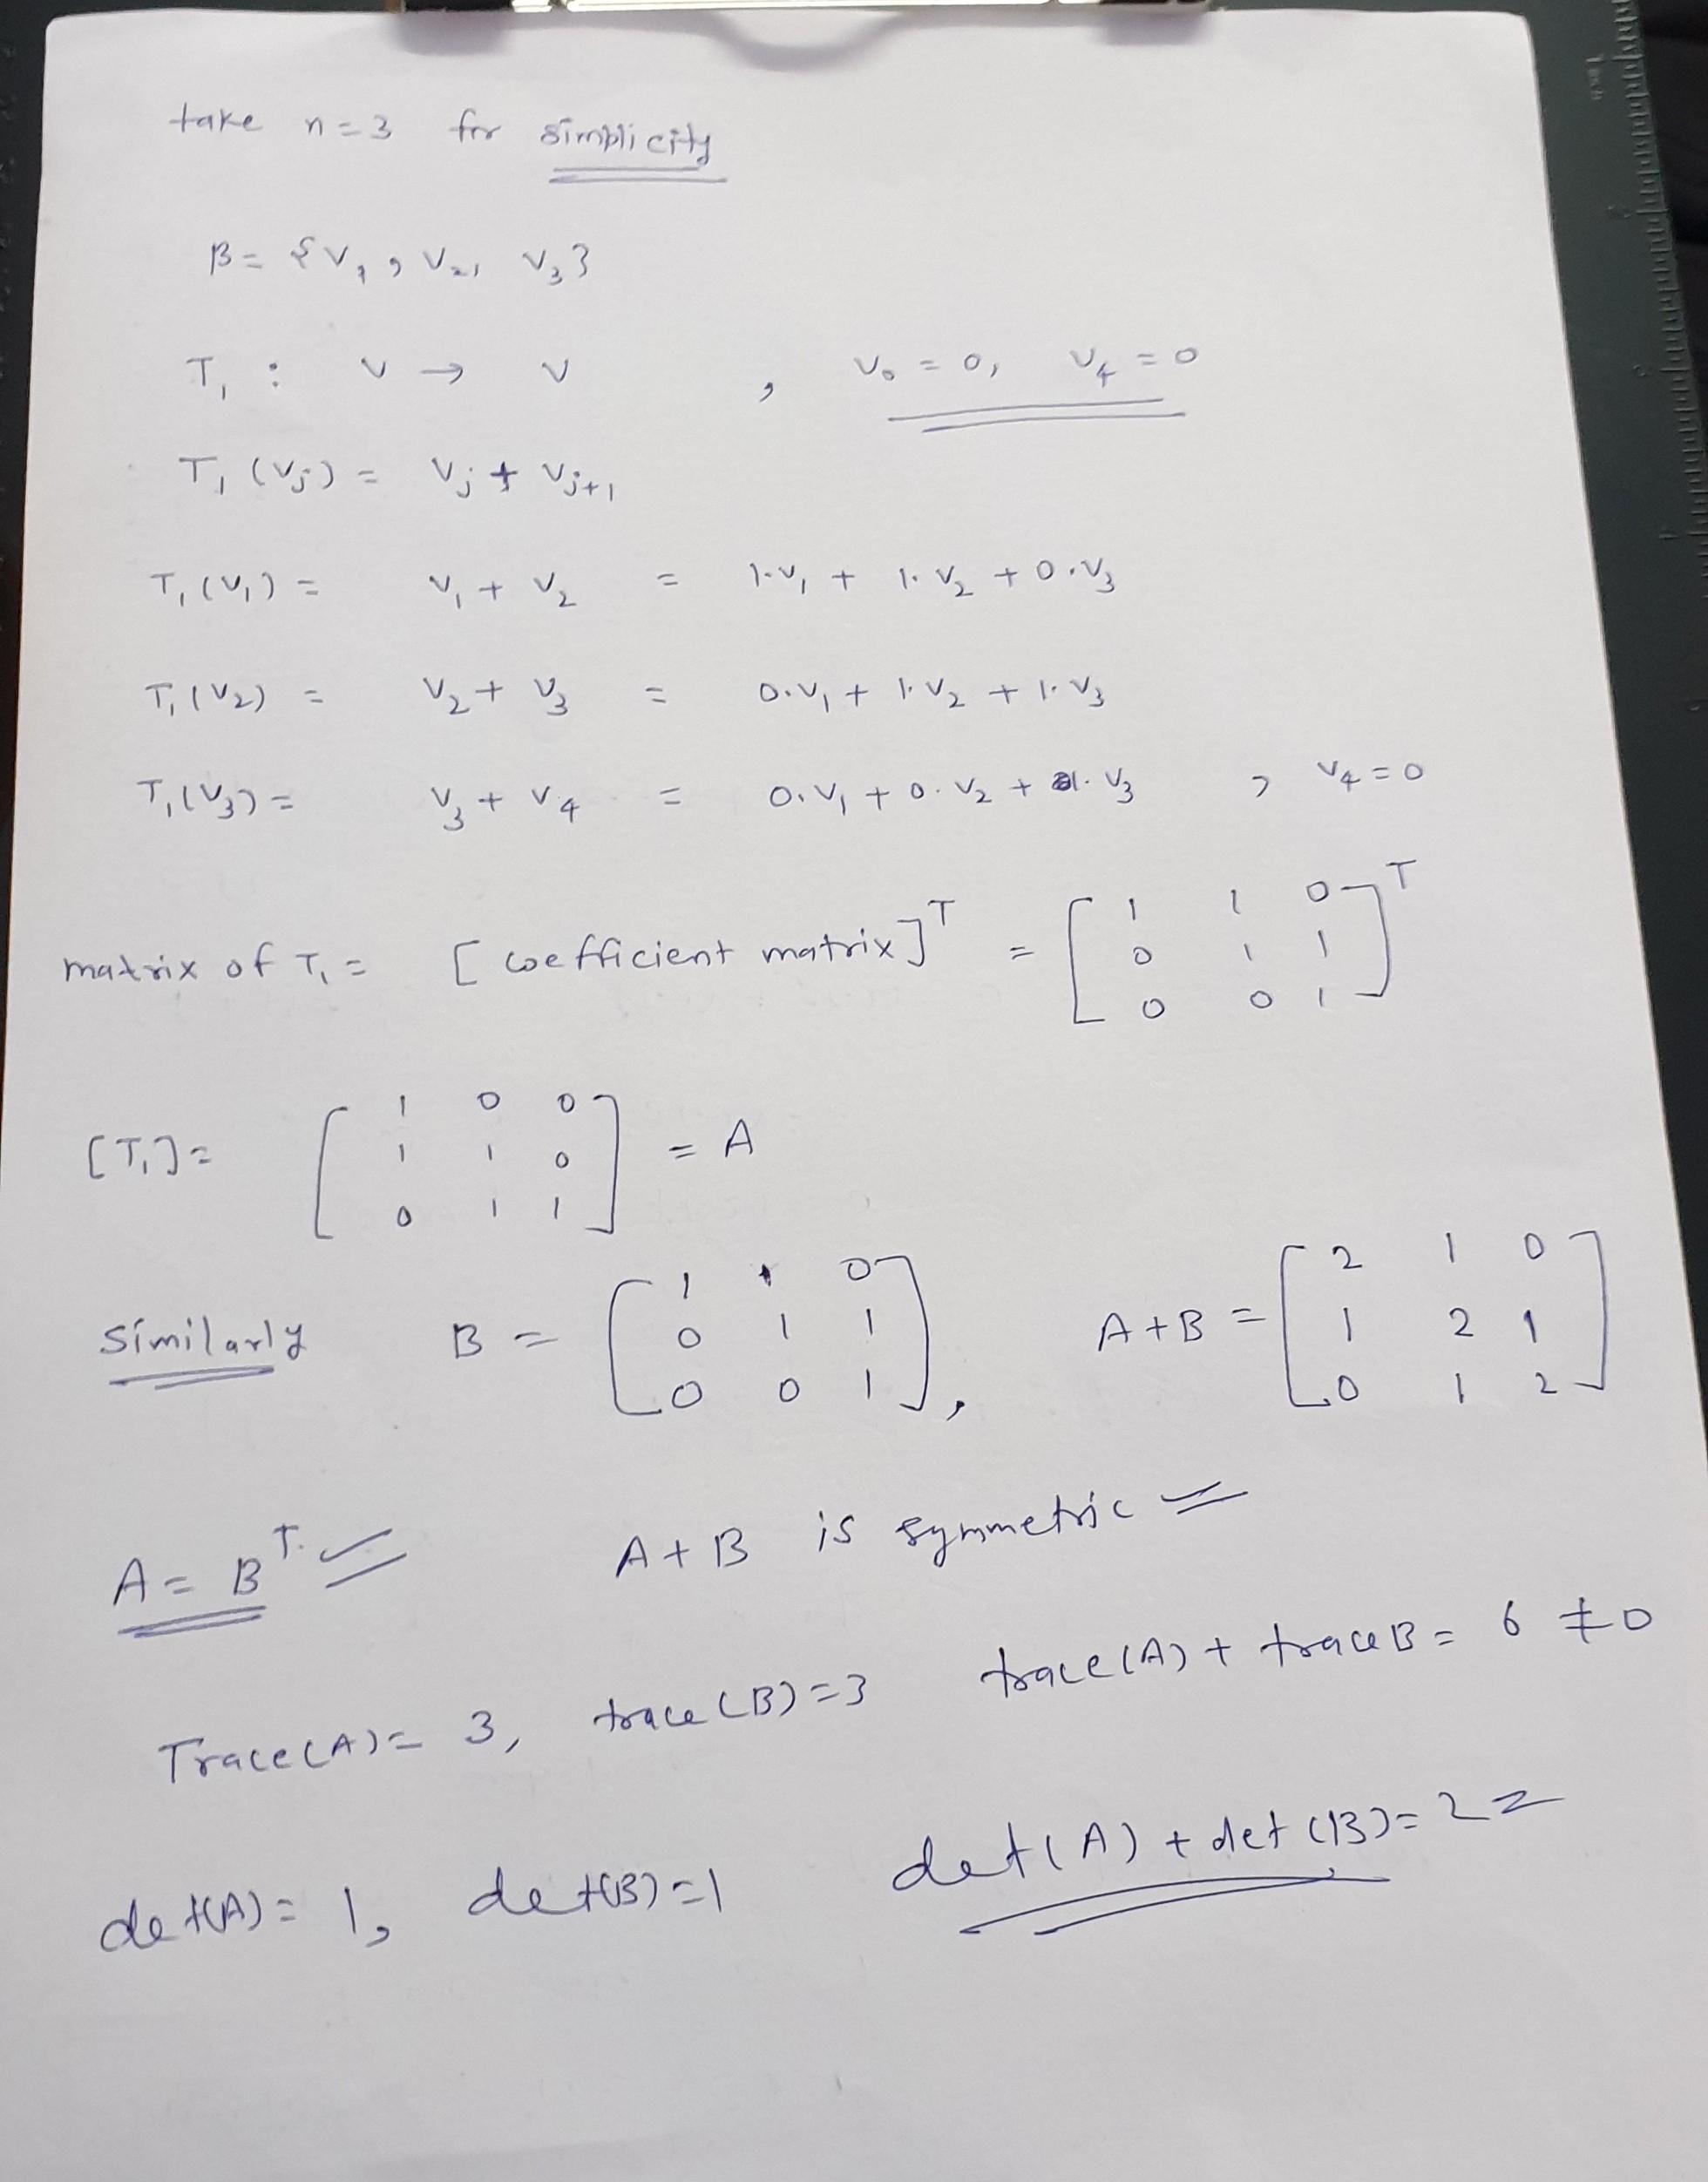 take n=3 for simplicity
B = {v₁, v₂, v₃}
T₁ : V → V , v₀ = 0, v₄ = 0
T₁(vⱼ) = vⱼ + vⱼ₊₁
T₁(v₁) = v₁ + v₂ = 1.v₁ + 1.v₂ + 0.v₃
T₁(v₂) = v₂ + v₃ = 0.v₁ + 1.v₂ + 1.v₃
T₁(v₃) = v₃ + v₄ = 0.v₁ + 0.v₂ + 1.v₃ , v₄ = 0
matrix of T₁ = [coefficient matrix]ᵀ = [1 1 0
0 1 1
0 0 1]ᵀ
[T₁] = [1 0 0
1 1 0
0 1 1] = A
Similarly B = [1 1 0
0 1 1
0 0 1], A+B = [2 1 0
1 2 1
0 1 2]
A = Bᵀ. A+B is symmetric
Trace(A) = 3, trace(B) = 3 trace(A) + trace B = 6 ≠ 0
det(A) = 1, det(B) = 1 det(A) + det(B) = 2